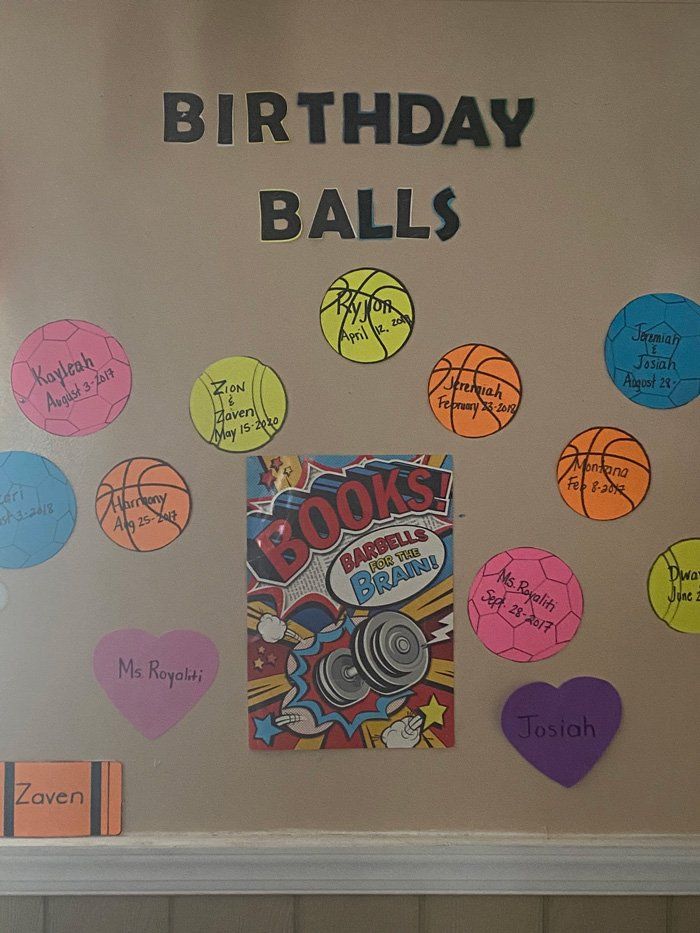 BIRTHDAY
BALLS
Ryjon
April 12. 2018
Jeremiah
&
Josiah
August 28-
Kayleah
August 3-2017
Zion
&
Zaven
May 15-2020
Jeremiah
February 23-2018
Montana
Feb 8-2017
Harmony
Aug 25-2017
3-2018
BOOKS!
BARBELLS
FOR THE
BRAIN!
Ms. Royaliti
Sept. 28-2017
June
Ms. Royaliti
Josiah
Zaven